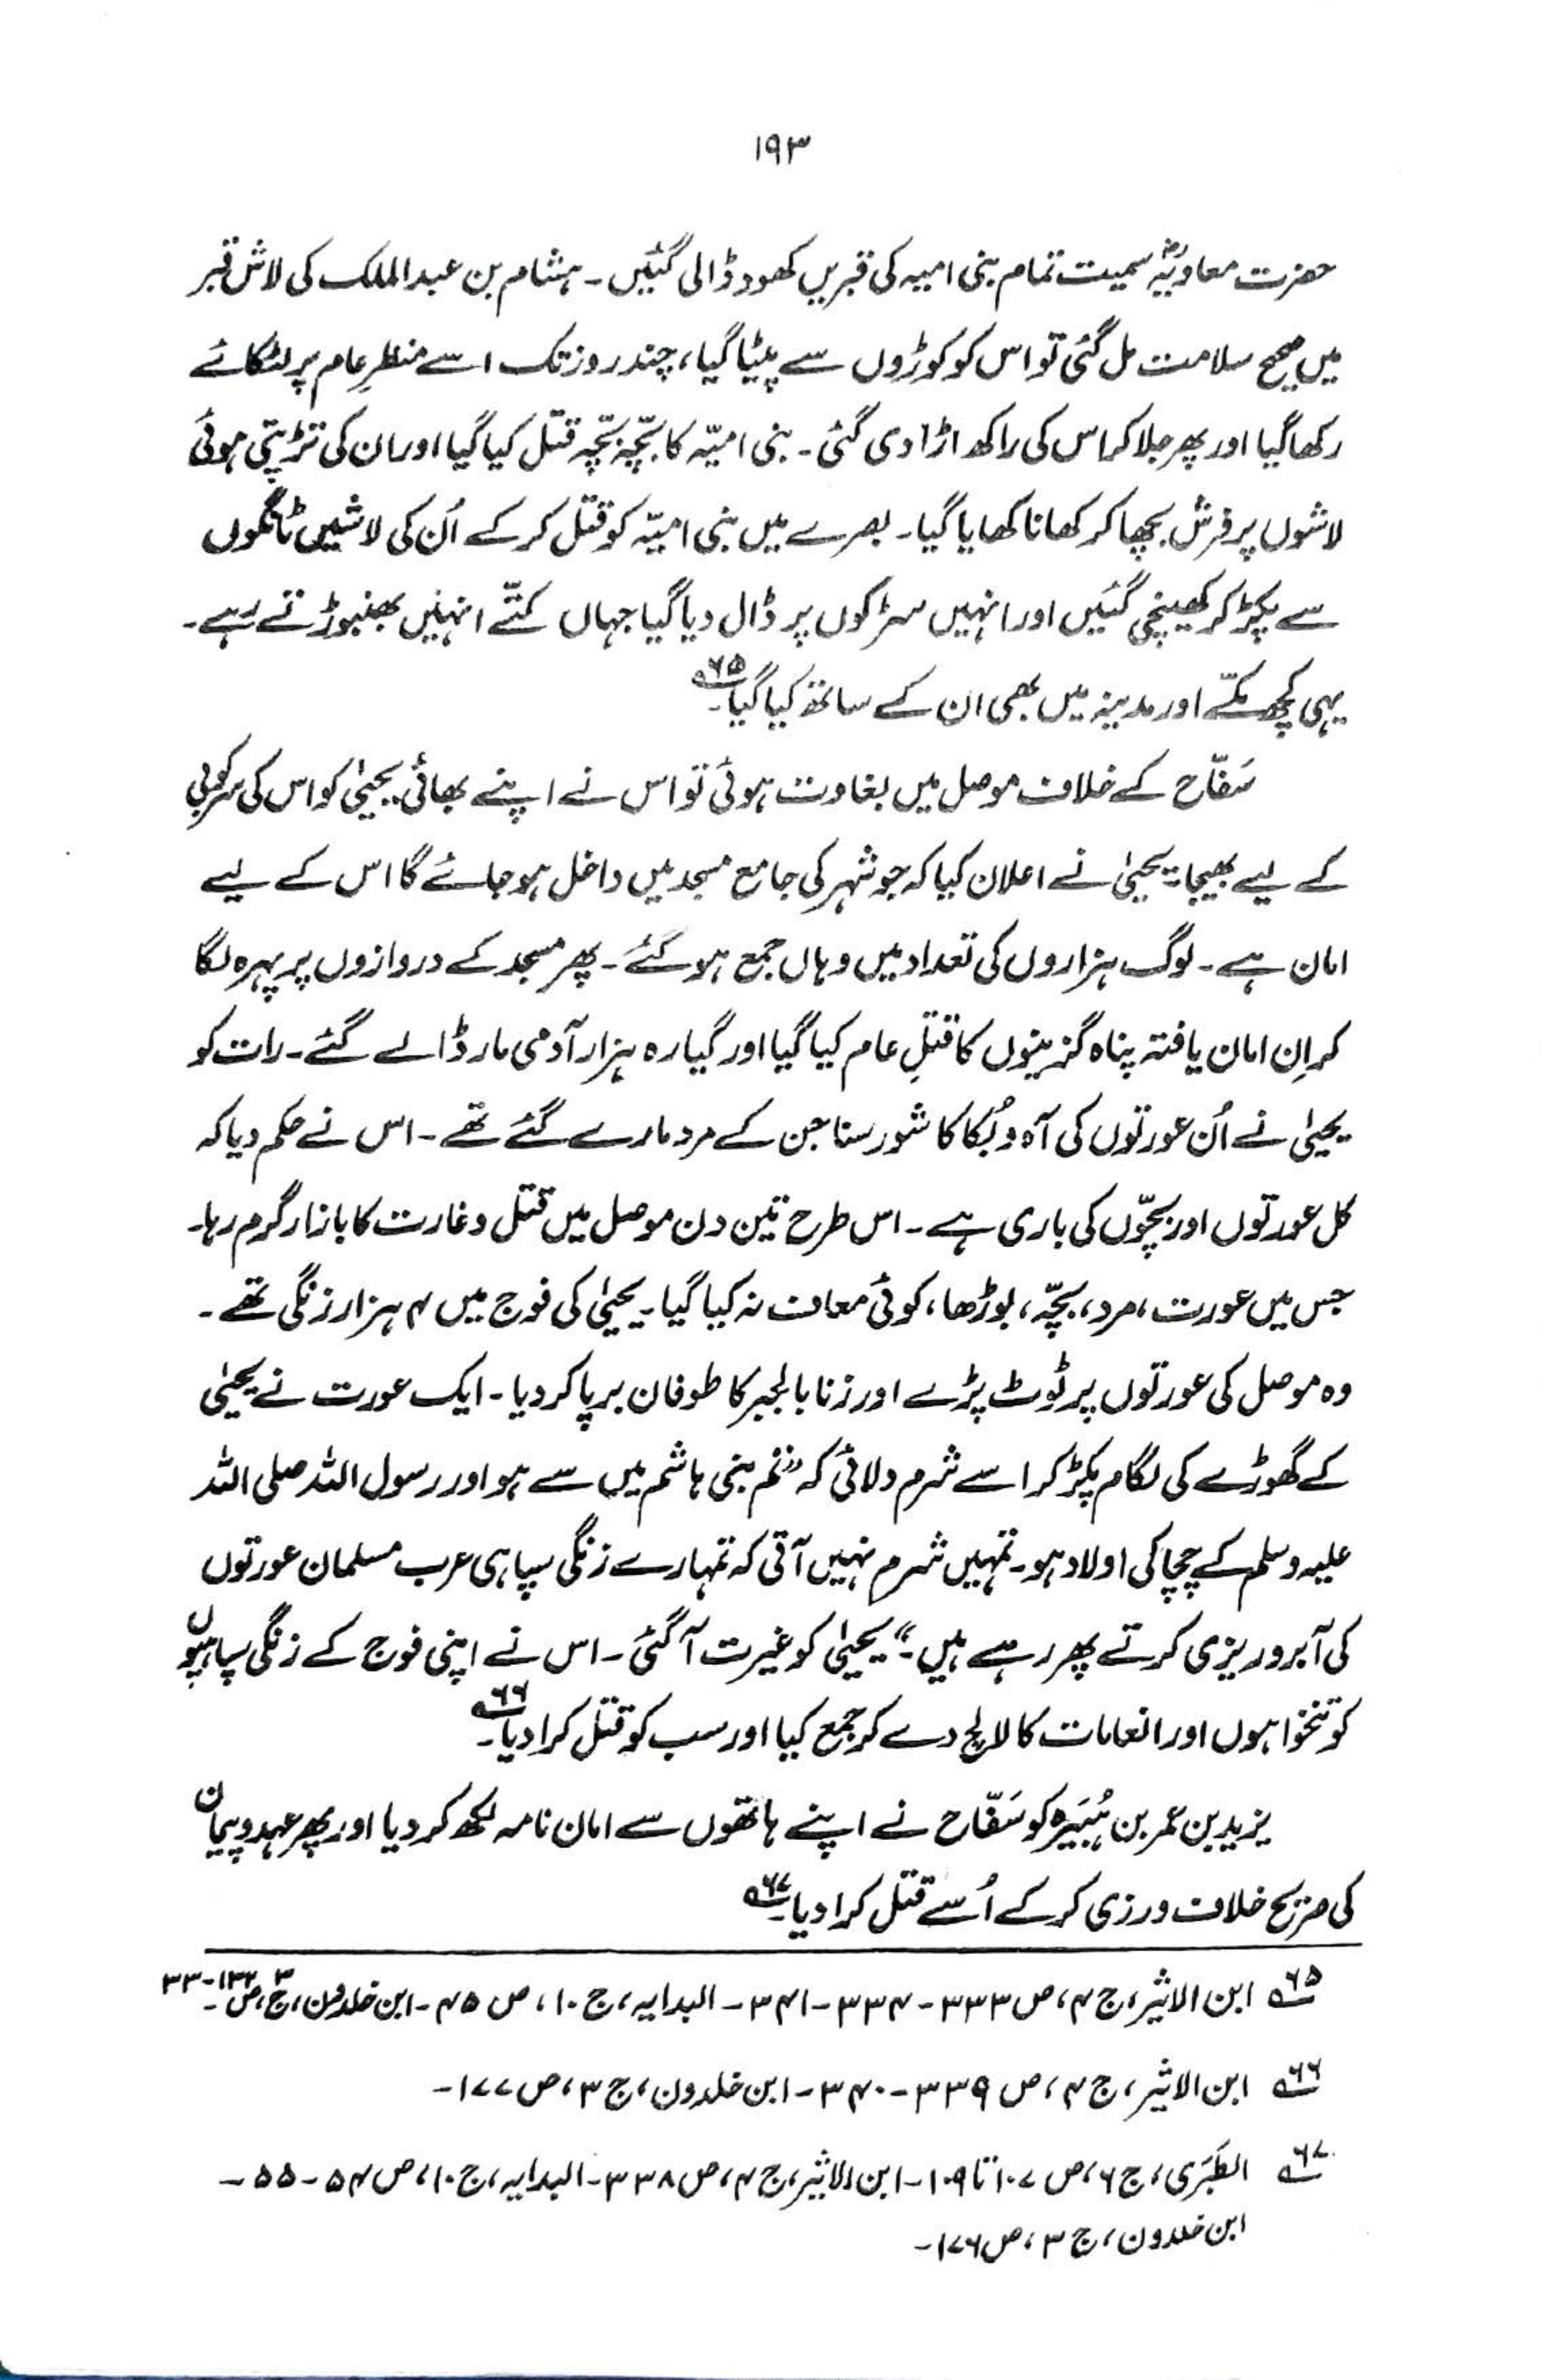 ۱۹۳
حضرت معاویہؓ سمیت تمام بنی امیہ کی قبریں کھود ڈالی گئیں۔ ہشام بن عبدالملک کی لاش قبر
میں صحیح سلامت مل گئی تو اس کو کوڑوں سے پیٹا گیا، چند روز تک اسے منظرِ عام پر لٹکائے
رکھا گیا اور پھر جلا کر اس کی راکھ اڑا دی گئی۔ بنی امیّہ کا بچّہ بچّہ قتل کیا گیا اور ان کی تڑپتی ہوئی
لاشوں پر فرش بچھا کر کھانا کھایا گیا۔ بصرے میں بنی امیّہ کو قتل کر کے اُن کی لاشیں ٹانگوں
سے پکڑ کر کھینچی گئیں اور انہیں سڑکوں پر ڈال دیا گیا جہاں کتّے انہیں بھنبوڑتے رہے۔
یہی کچھ مکّے اور مدینہ میں بھی ان کے ساتھ کیا گیا۔ ۶۵؎
سَفّاح کے خلاف موصل میں بغاوت ہوئی تو اس نے اپنے بھائی یحییٰ کو اس کی سرکوبی
کے لیے بھیجا۔ یحییٰ نے اعلان کیا کہ جو شہر کی جامع مسجد میں داخل ہو جائے گا اس کے لیے
امان ہے۔ لوگ ہزاروں کی تعداد میں وہاں جمع ہو گئے۔ پھر مسجد کے دروازوں پر پہرہ لگا
کر اِن امان یافتہ پناہ گزینوں کا قتلِ عام کیا گیا اور گیارہ ہزار آدمی مار ڈالے گئے۔ رات کو
یحییٰ نے اُن عورتوں کی آہ و بُکا کا شور سنا جن کے مرد مارے گئے تھے۔ اس نے حکم دیا کہ
کل عورتوں اور بچّوں کی باری ہے۔ اس طرح تین دن موصل میں قتل و غارت کا بازار گرم رہا۔
جس میں عورت، مرد، بچّہ، بوڑھا، کوئی معاف نہ کیا گیا۔ یحییٰ کی فوج میں ۴ ہزار زنگی تھے۔
وہ موصل کی عورتوں پر ٹوٹ پڑے اور زنا بالجبر کا طوفان برپا کر دیا۔ ایک عورت نے یحییٰ
کے گھوڑے کی لگام پکڑ کر اسے شرم دلائی کہ ”تم بنی ہاشم میں سے ہو اور رسول اللہ صلی اللہ
علیہ وسلم کے چچا کی اولاد ہو۔ تمہیں شرم نہیں آتی کہ تمہارے زنگی سپاہی عرب مسلمان عورتوں
کی آبرو ریزی کرتے پھر رہے ہیں۔“ یحییٰ کو غیرت آ گئی۔ اس نے اپنی فوج کے زنگی سپاہیوں
کو تنخواہوں اور انعامات کا لالچ دے کر جمع کیا اور سب کو قتل کرا دیا۔ ۶۶؎
یزید بن عمر بن ہُبَیرہ کو سَفّاح نے اپنے ہاتھوں سے امان نامہ لکھ کر دیا اور پھر عہد و پیمان
کی صریح خلاف ورزی کر کے اُسے قتل کرا دیا۔ ۶۷؎
۶۵؎ ابن الاثیر، ج ۴، ص ۳۳۳-۳۳۴-۳۴۱۔ البدایہ، ج ۱۰، ص ۴۵۔ ابن خلدون، ج ۳، ص ۱۳۲-۳۳
۶۶؎ ابن الاثیر، ج ۴، ص ۳۳۹-۳۴۰۔ ابن خلدون، ج ۳، ص ۱۷۷۔
۶۷؎ الطَبَری، ج ۶، ص ۱۰۷ تا ۱۰۹۔ ابن الاثیر، ج ۴، ص ۳۳۸۔ البدایہ، ج ۱۰، ص ۵۴-۵۵۔
ابن خلدون، ج ۳، ص ۱۷۶۔